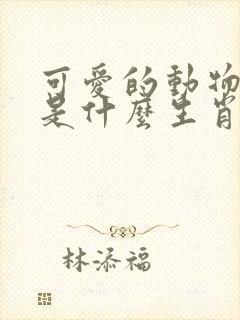 可愛的動物
是什麼生肖
林添福